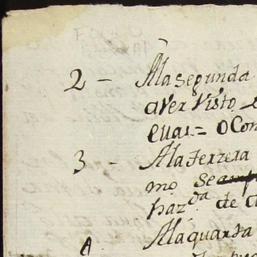 2 - Ala segunda
aver visto
ellas = o Con
3 - Ala terzera
mo
haz.da de
4 Ala quarta